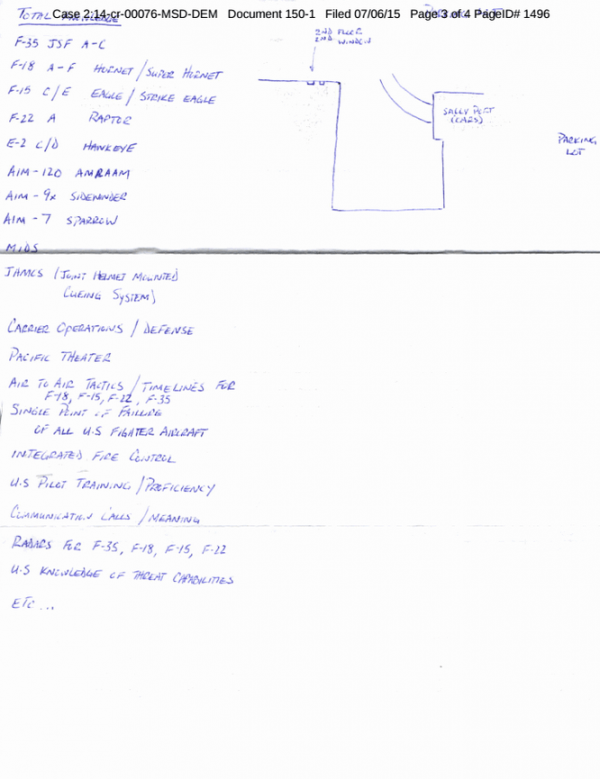 Case 2:14-cr-00076-MSD-DEM Document 150-1 Filed 07/06/15 Page 3 of 4 PageID# 1496
TOTAL
F-35 JSF A-C
F-18 A-F HORNET / SUPER HORNET
F-15 C/E EAGLE / STRIKE EAGLE
F-22 A RAPTOR
E-2 C/D HAWKEYE
AIM-120 AMRAAM
AIM-9X SIDEWINDER
AIM-7 SPARROW
MIDS
2ND FLOOR
2ND WINDOW
SALLY PORT
(CARS)
PARKING
LOT
JHMCS (JOINT HELMET MOUNTED
CUEING SYSTEM)
CARRIER OPERATIONS / DEFENSE
PACIFIC THEATER
AIR TO AIR TACTICS / TIMELINES FOR
F-18, F-15, F-22, F-35
SINGLE POINT OF FAILURE
OF ALL U.S FIGHTER AIRCRAFT
INTEGRATED FIRE CONTROL
U.S PILOT TRAINING / PROFICIENCY
COMMUNICATION CALLS / MEANING
RADARS FOR F-35, F-18, F-15, F-22
U.S KNOWLEDGE OF THREAT CAPABILITIES
ETC ...